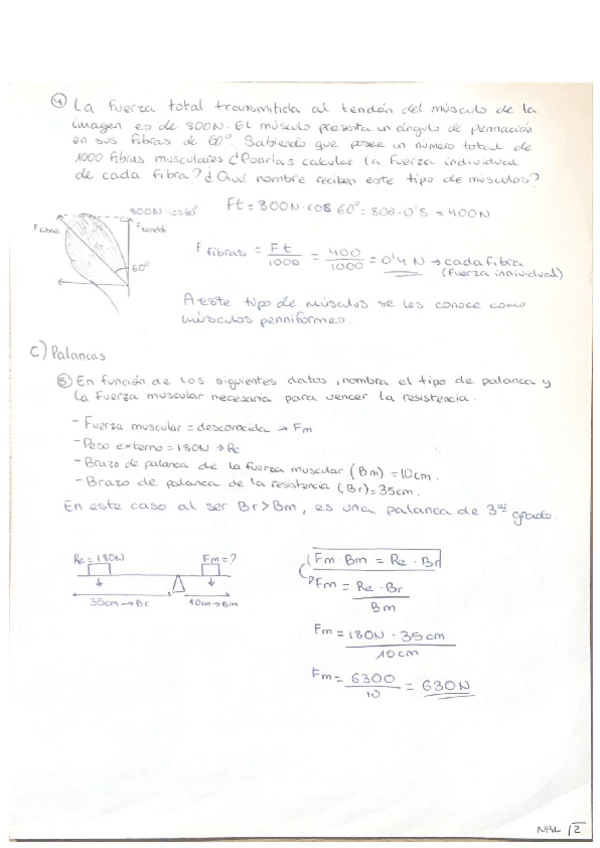 ④ La fuerza total transmitida al tendón del músculo de la
imagen es de 800N. El músculo presenta un ángulo de pennación
en sus fibras de 60º. Sabiendo que posee un número total de
1000 fibras musculares ¿Podrías calcular la fuerza individual
de cada fibra? ¿Qué nombre reciben este tipo de músculos?
800N·cos60º
F fibras
F tendón
60º
Ft = 800N·cos 60º = 800·0'5 = 400N
F fibras = Ft / 1000 = 400 / 1000 = 0'4 N → cada fibra
(fuerza individual)
A este tipo de músculos se les conoce como
músculos penniformes.
C) Palancas
⑤ En función de los siguientes datos, nombra el tipo de palanca y
la fuerza muscular necesaria para vencer la resistencia.
- Fuerza muscular = desconocida → Fm
- Peso externo = 180N → Re
- Brazo de palanca de la fuerza muscular (Bm) = 10cm.
- Brazo de palanca de la resistencia (Br) = 35cm.
En este caso al ser Br > Bm, es una palanca de 3er grado.
Re = 180N
Fm = ?
35cm → Br
10cm → Bm
Fm · Bm = Re · Br
Fm = Re · Br / Bm
Fm = 180N · 35cm / 10cm
Fm = 6300 / 10 = 630N